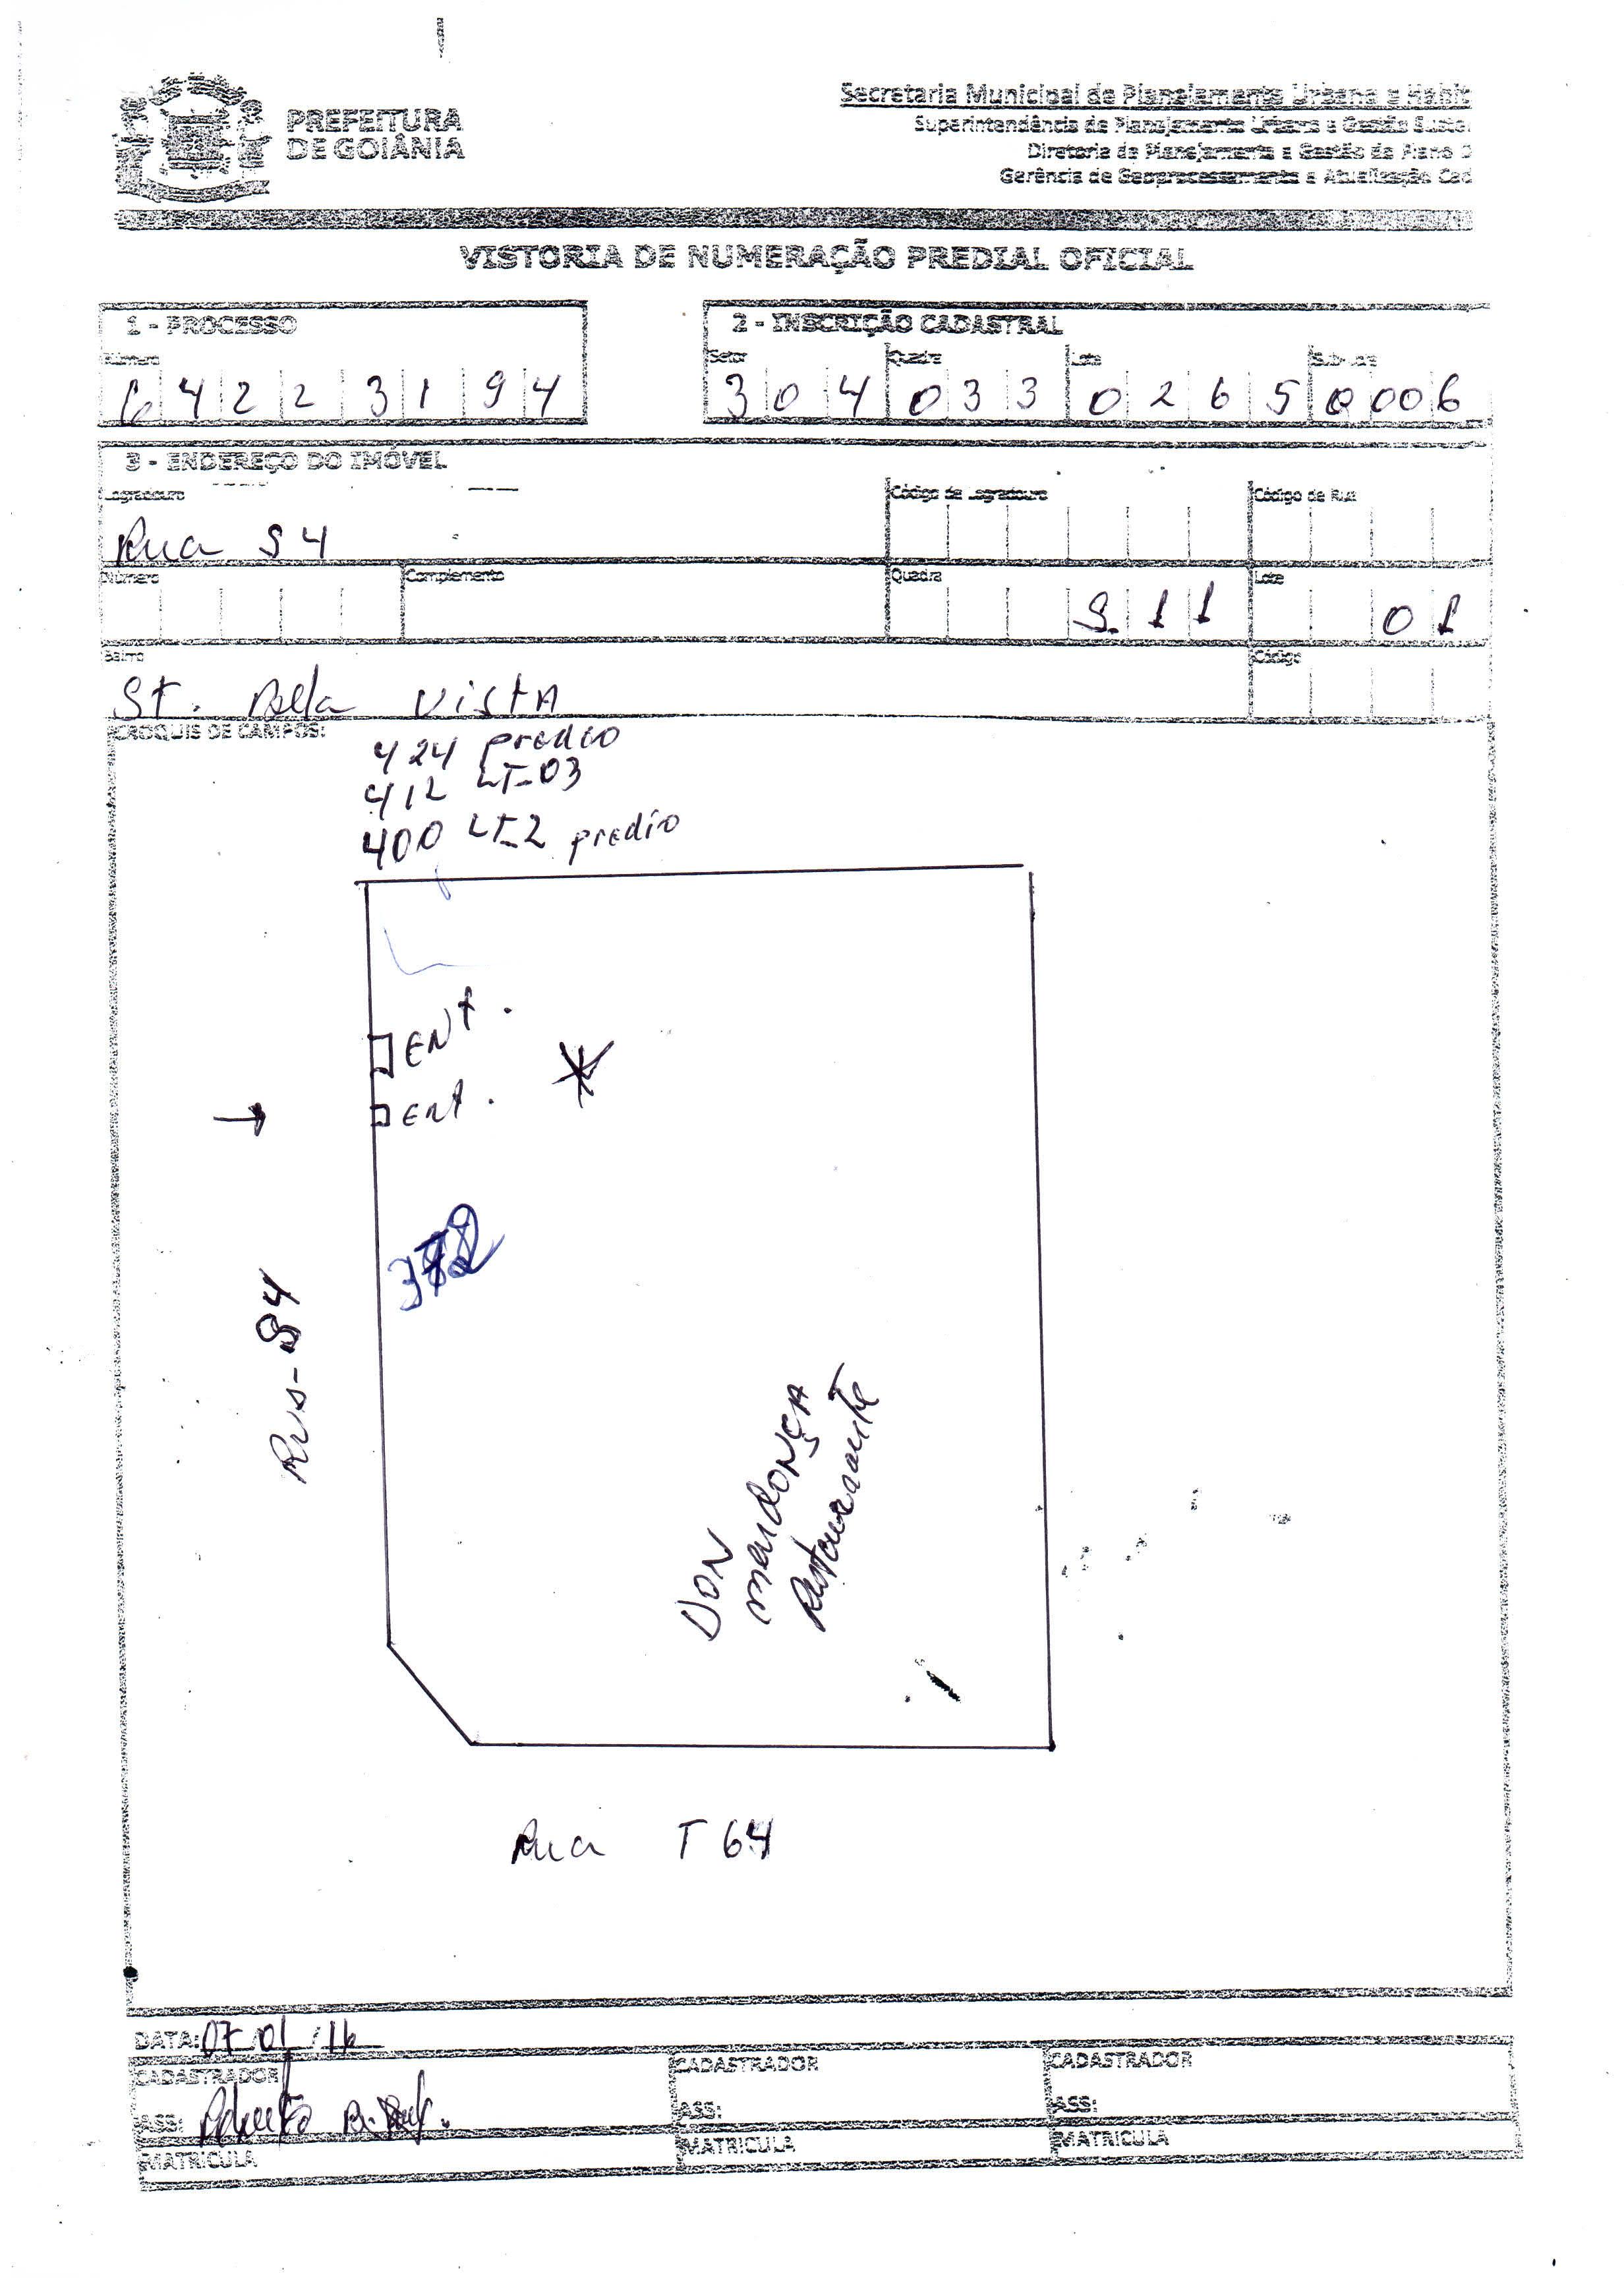 PREFEITURA
DE GOIÂNIA
Secretaria Municipal de Planejamento Urbano e Habit
Superintendência de Planejamento Urbano e Gestão Suste
Diretoria de Planejamento e Gestão do Plano D
Gerência de Geoprocessamento e Atualização Cad
VISTORIA DE NUMERAÇÃO PREDIAL OFICIAL
1 - PROCESSO
Número
6 4 2 2 3 1 9 4
2 - INSCRIÇÃO CADASTRAL
Setor Quadra Lote Sub-Lote
3 0 4 0 3 3 0 2 6 5 0 0 0 6
3 - ENDEREÇO DO IMÓVEL
Logradouro Código de Logradouro Código de Rua
Rua S4
Número Complemento Quadra Lote
S.11 01
Bairro Código
St. Bela Vista
CROQUIS DE CAMPOS:
424 predio
412 LT-03
400 LT-2 predio
ENt.
Ent.
Rua-S4
DON
mendonça
Restaurante
Rua T 64
DATA: 07/01/16
CADASTRADOR CADASTRADOR CADASTRADOR
ASS: ASS: ASS:
MATRICULA MATRICULA MATRICULA